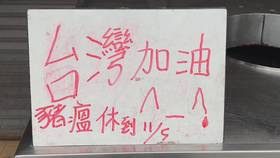 台灣加油
^_^!
豬瘟休到11/5